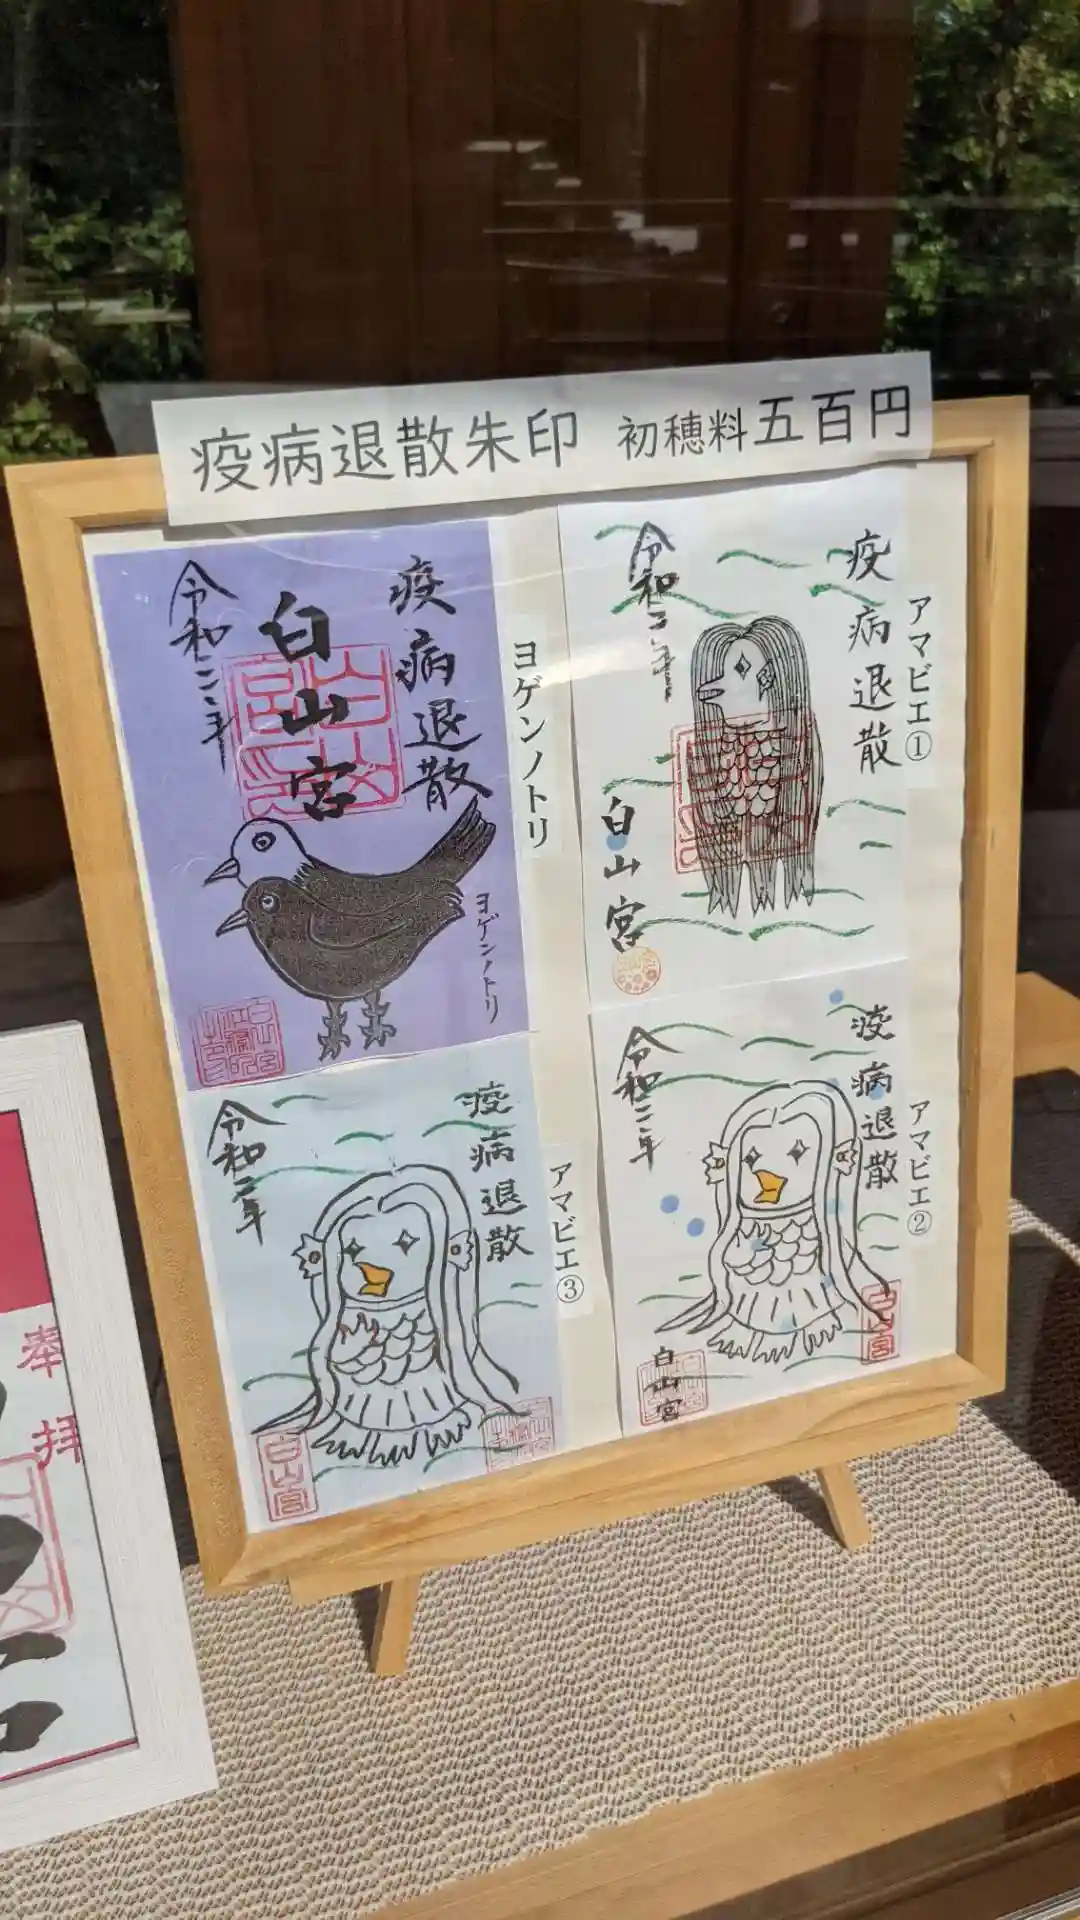 疫病退散朱印 初穂料五百円
疫病退散
白山宮
令和二年
ヨゲンノトリ
ヨゲンノトリ
疫病退散
令和二年
白山宮
アマビエ①
疫病退散
令和二年
白山宮
白山宮
アマビエ②
疫病退散
令和二年
白山宮
アマビエ③
奉拝